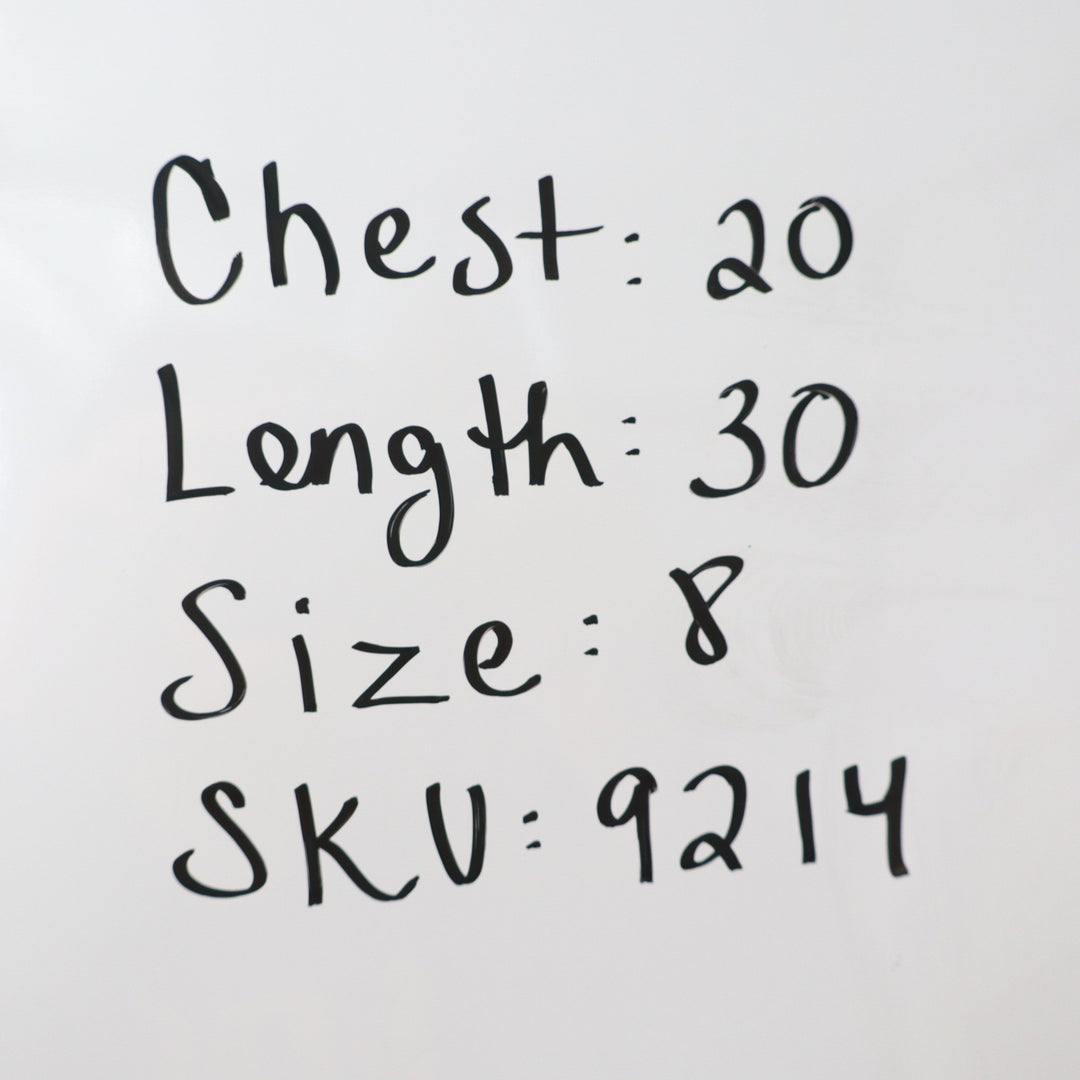 Chest: 20
Length: 30
Size: 8
SKU: 9214